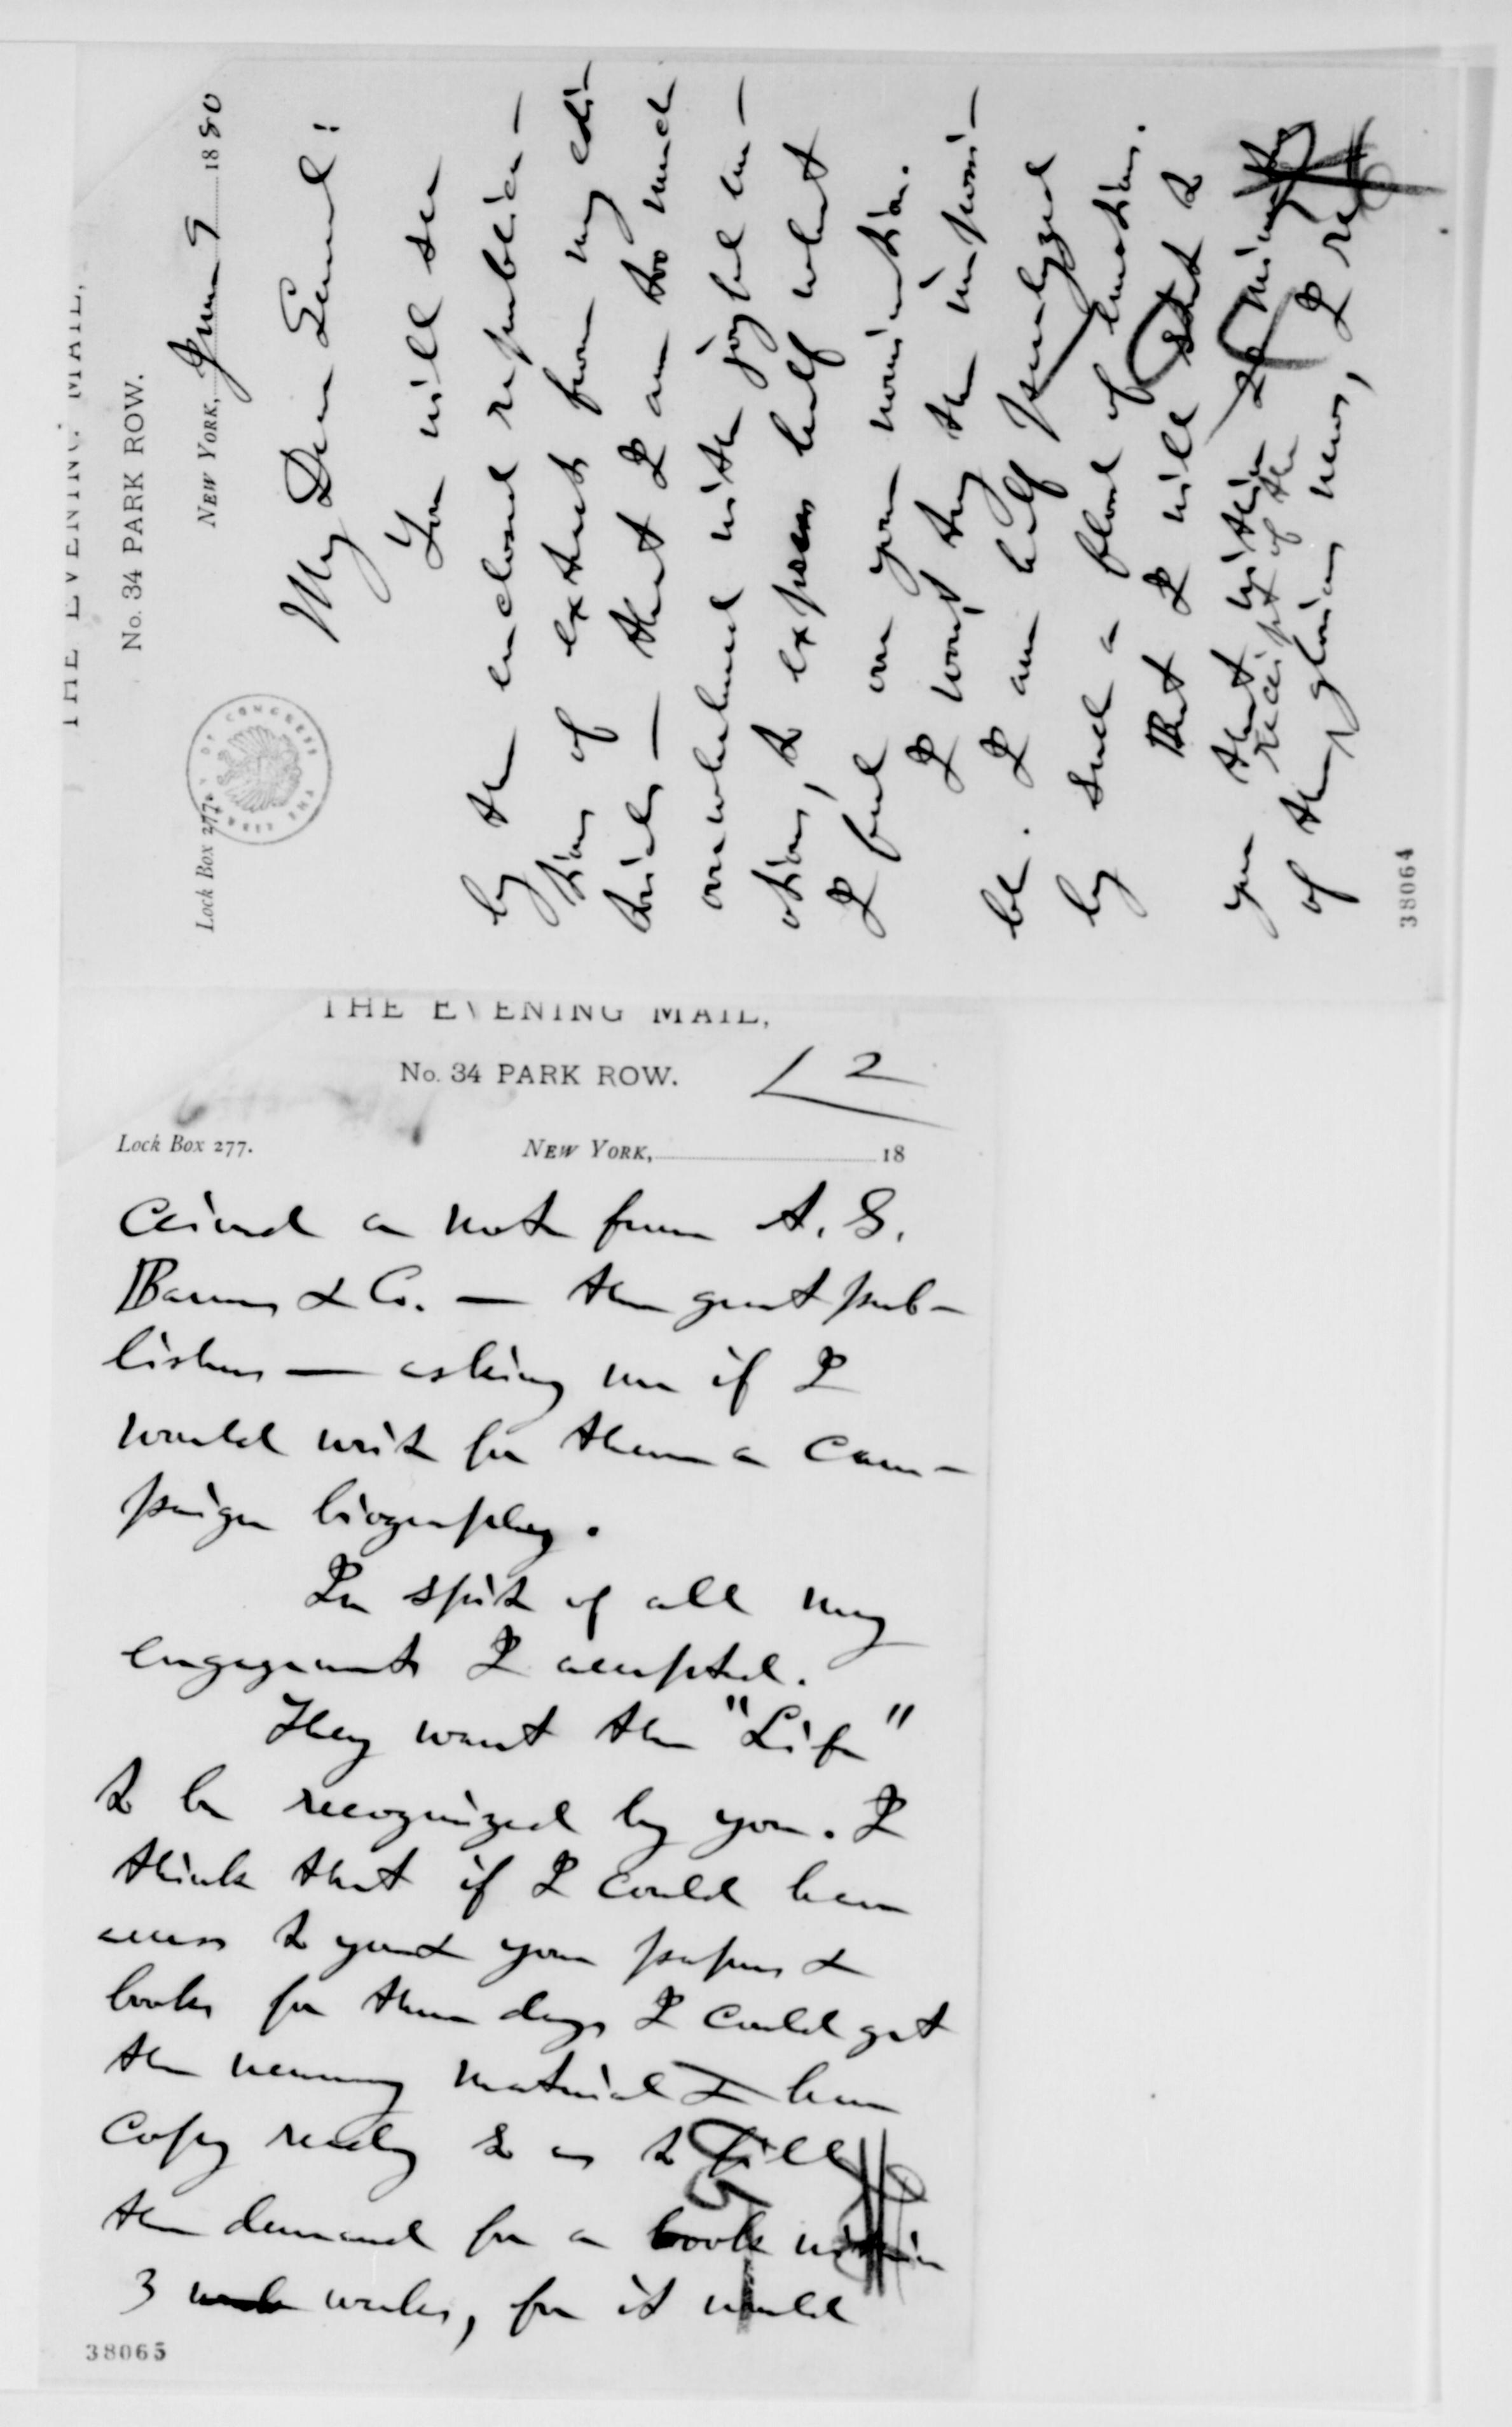 THE EVENING MAIL,
No. 34 PARK ROW.
Lock Box 277.
NEW YORK, June 9 1880
My Dear General:
You will see
by the enclosed republica-
tion of extract from my edi-
torials — that I am too much
overwhelmed with joyful em-
otion, to express half what
I feel over your nomination.
I won't try the impossi-
ble. I am half paralyzed
by such a flood of emotion.
But I will state to
you that within 20 minutes
receipt of the
of the glorious news, I re
38064
THE EVENING MAIL,
No. 34 PARK ROW.
2
Lock Box 277.
NEW YORK, 18
ceived a note from A. S.
Barnes & Co. — the great pub-
lishers — asking me if I
would write for them a cam-
paign biography.
In spite of all my
engagements I accepted.
They want the "Life"
to be recognized by you. I
think that if I could have
access to you & your papers &
books for three days I could get
the necessary material & have
copy ready so as to fill
the demand for a book within
3 weeks, for it would
38065